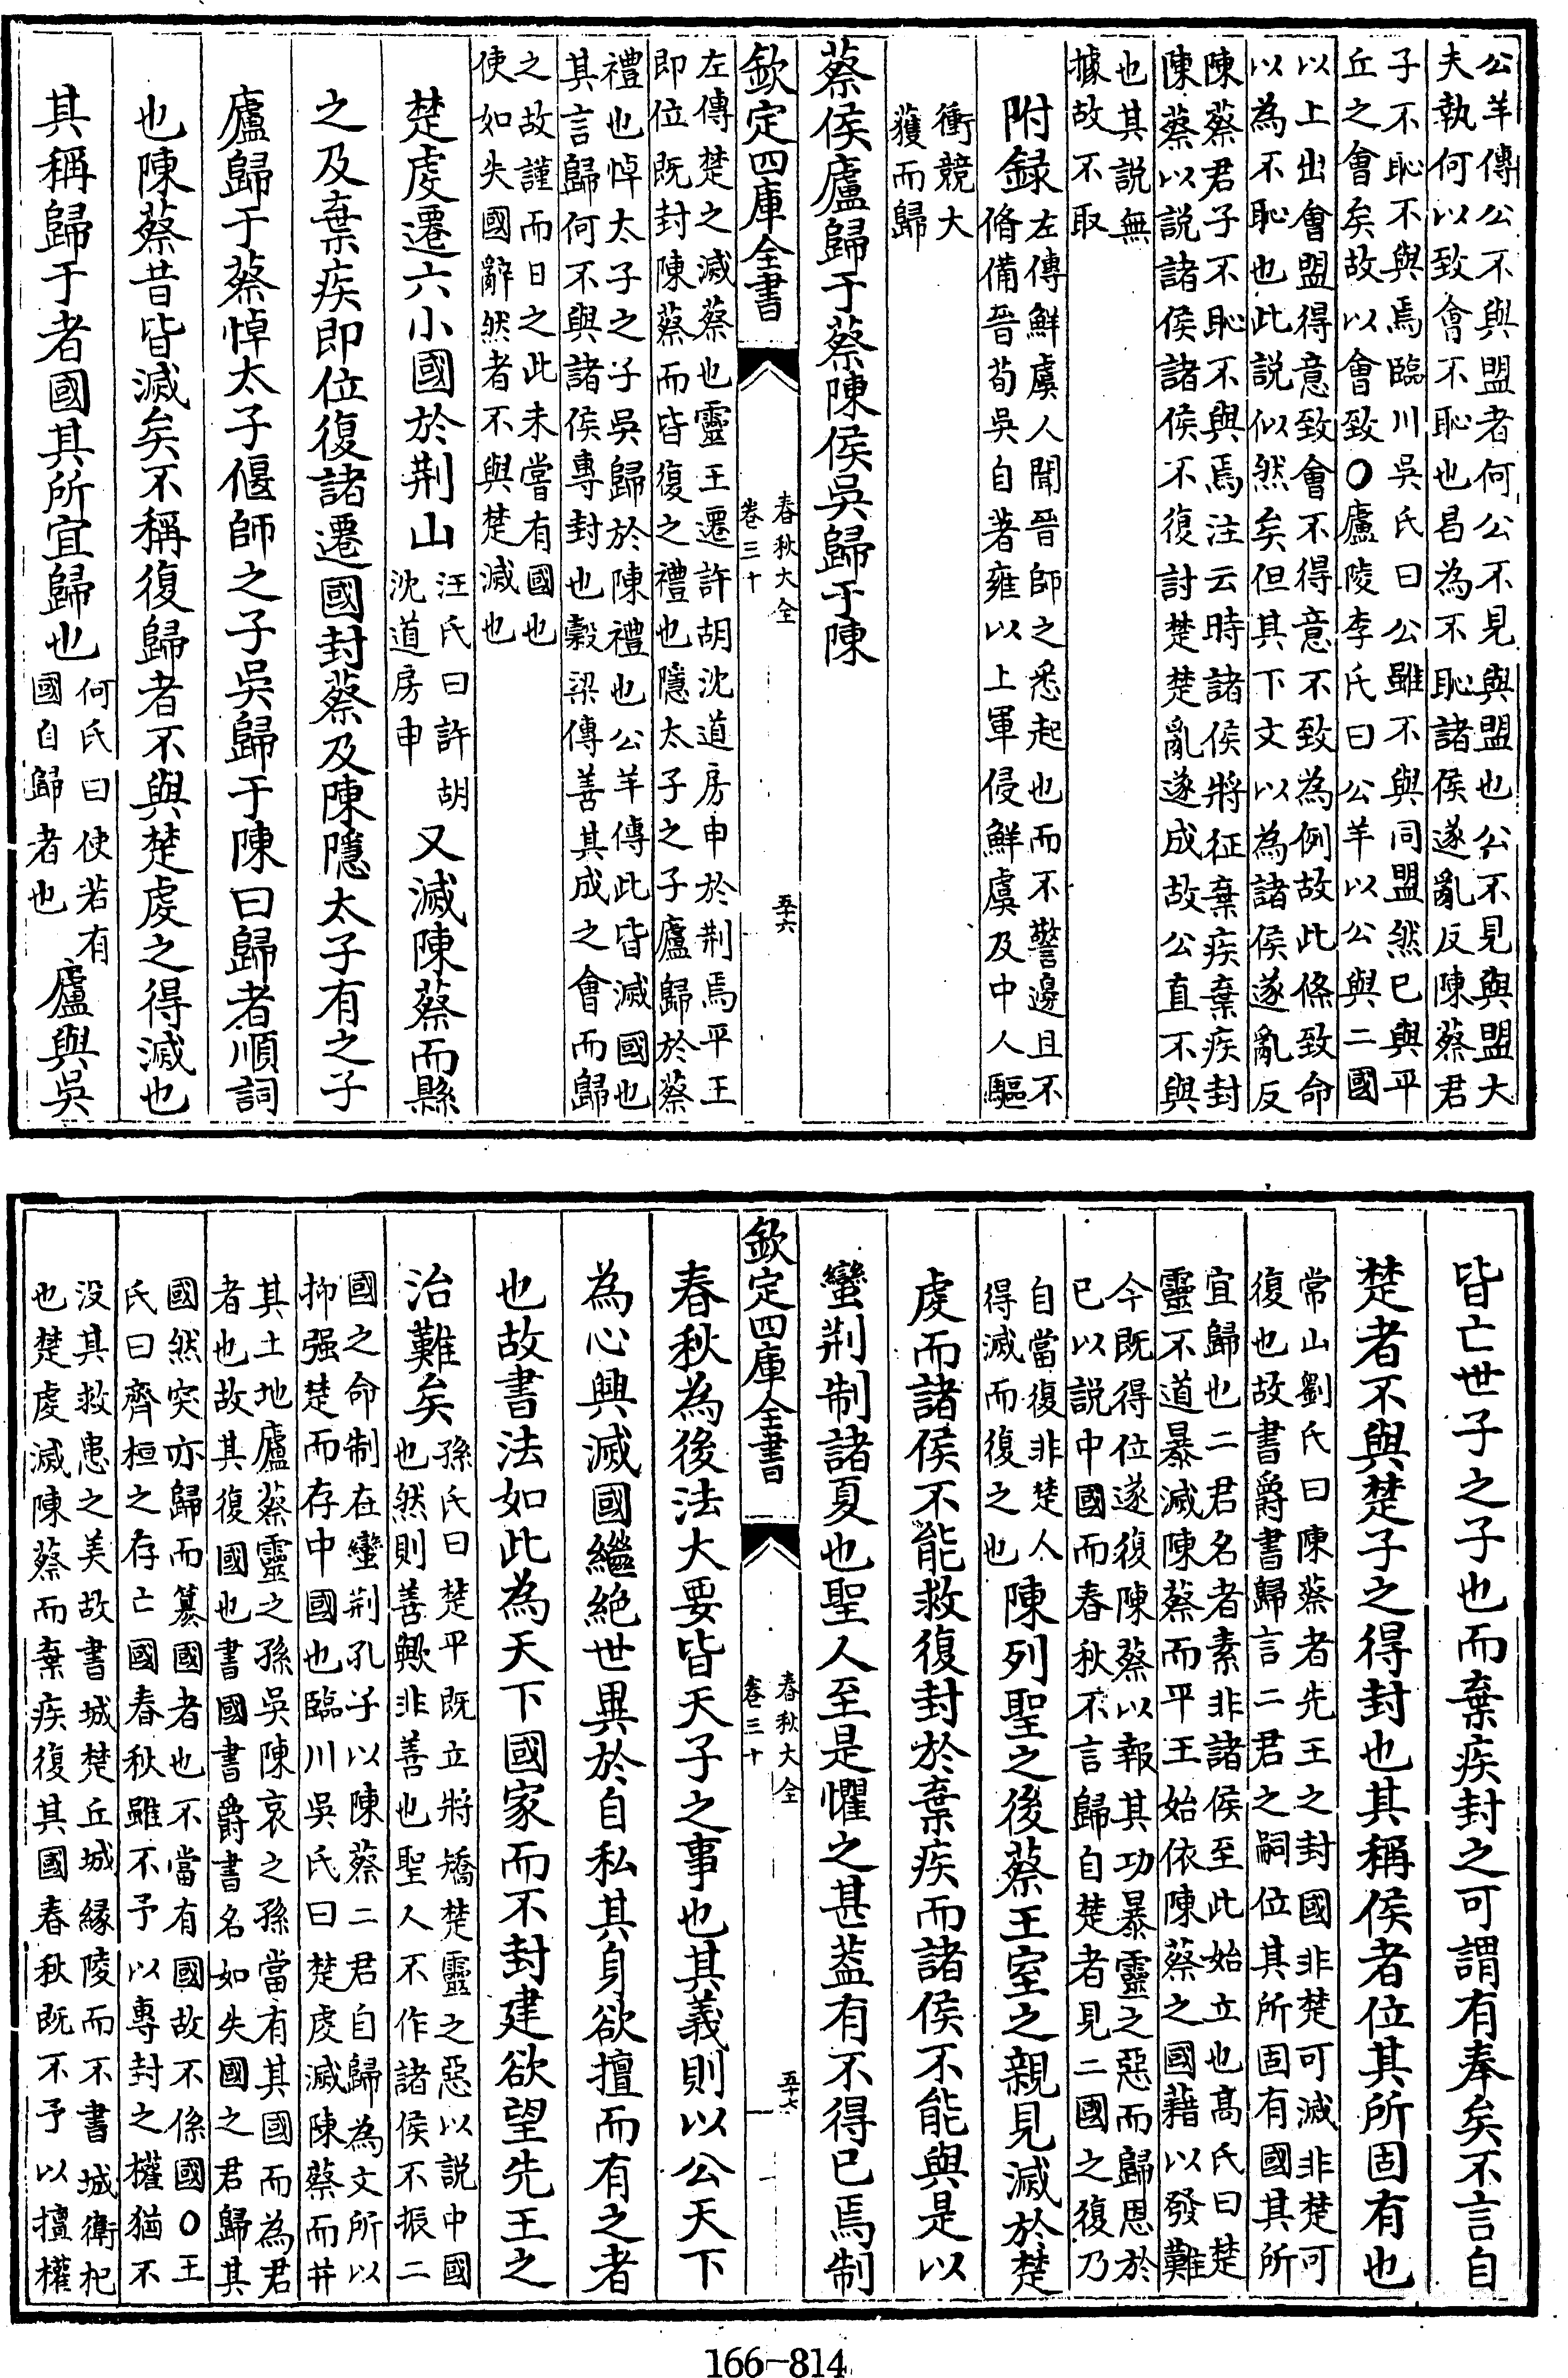 公羊傳公不與盟者何公不見與盟也公不見與盟大
夫執何以致會不恥也曷為不恥諸侯遂亂反陳蔡君
子不恥不與焉臨川吳氏曰公雖不與同盟然已與平
丘之會矣故以會致〇廬陵李氏曰公羊以公與二國
以上出會盟得意致會不得意不致為例故此條致命
以為不恥也此說似然矣但其下文以為諸侯遂亂反
陳蔡君子不恥不與焉注云時諸侯將征棄疾棄疾封
陳蔡以說諸侯諸侯不復討楚楚亂遂成故公直不與
也其說無
據故不取
附録
左傳鮮虞人聞晉師之悉起也而不警邊且不
脩備晉荀吳自著雍以上軍侵鮮虞及中人驅
衝競大
獲而歸
蔡侯廬歸于蔡陳侯吳歸于陳
欽定四庫全書
春秋大全
卷三十
五十六
左傳楚之滅蔡也靈王遷許胡沈道房申於荆焉平王
即位既封陳蔡而皆復之禮也隱太子之子廬歸於蔡
禮也悼太子之子吳歸於陳禮也公羊傳此皆滅國也
其言歸何不與諸侯專封也穀梁傳善其成之會而歸
之故謹而日之此未嘗有國也
使如失國辭然者不與楚滅也
楚虔遷六小國於荆山
汪氏曰許胡
沈道房申
又滅陳蔡而縣
之及棄疾即位復諸遷國封蔡及陳隱太子有之子
廬歸于蔡悼太子偃師之子吳歸于陳曰歸者順詞
也陳蔡昔皆滅矣不稱復歸者不與楚虔之得滅也
其稱歸于者國其所宜歸也
何氏曰使若有
國自歸者也
廬與吳
皆亡世子之子也而棄疾封之可謂有奉矣不言自
楚者不與楚子之得封也其稱侯者位其所固有也
常山劉氏曰陳蔡者先王之封國非楚可滅非楚可
復也故書爵書歸言二君之嗣位其所固有國其所
宜歸也二君名者素非諸侯至此始立也髙氏曰楚
靈不道暴滅陳蔡而平王始依陳蔡之國藉以發難
今既得位遂復陳蔡以報其功暴靈之惡而歸恩於
已以說中國而春秋不言歸自楚者見二國之復乃
自當復非楚人
得滅而復之也
陳列聖之後蔡王室之親見滅於楚
虔而諸侯不能救復封於棄疾而諸侯不能與是以
蠻荆制諸夏也聖人至是懼之甚葢有不得已焉制
欽定四庫全書
春秋大全
卷三十
五十六
春秋為後法大要皆天子之事也其義則以公天下
為心興滅國繼絶世異於自私其身欲擅而有之者
也故書法如此為天下國家而不封建欲望先王之
治難矣
孫氏曰楚平既立將矯楚靈之惡以說中國
也然則善歟非善也聖人不作諸侯不振二
國之命制在蠻荆孔子以陳蔡二君自歸為文所以
抑强楚而存中國也臨川吳氏曰楚虔滅陳蔡而并
其土地廬蔡靈之孫吳陳哀之孫當有其國而為君
者也故其復國也書國書爵書名如失國之君歸其
國然突亦歸而簒國者也不當有國故不係國〇王
氏曰齊桓之存亡國春秋雖不予以專封之權猶不
没其救患之美故書城楚丘城緣陵而不書城衛杞
也楚虔滅陳蔡而棄疾復其國春秋既不予以擅權
166-814